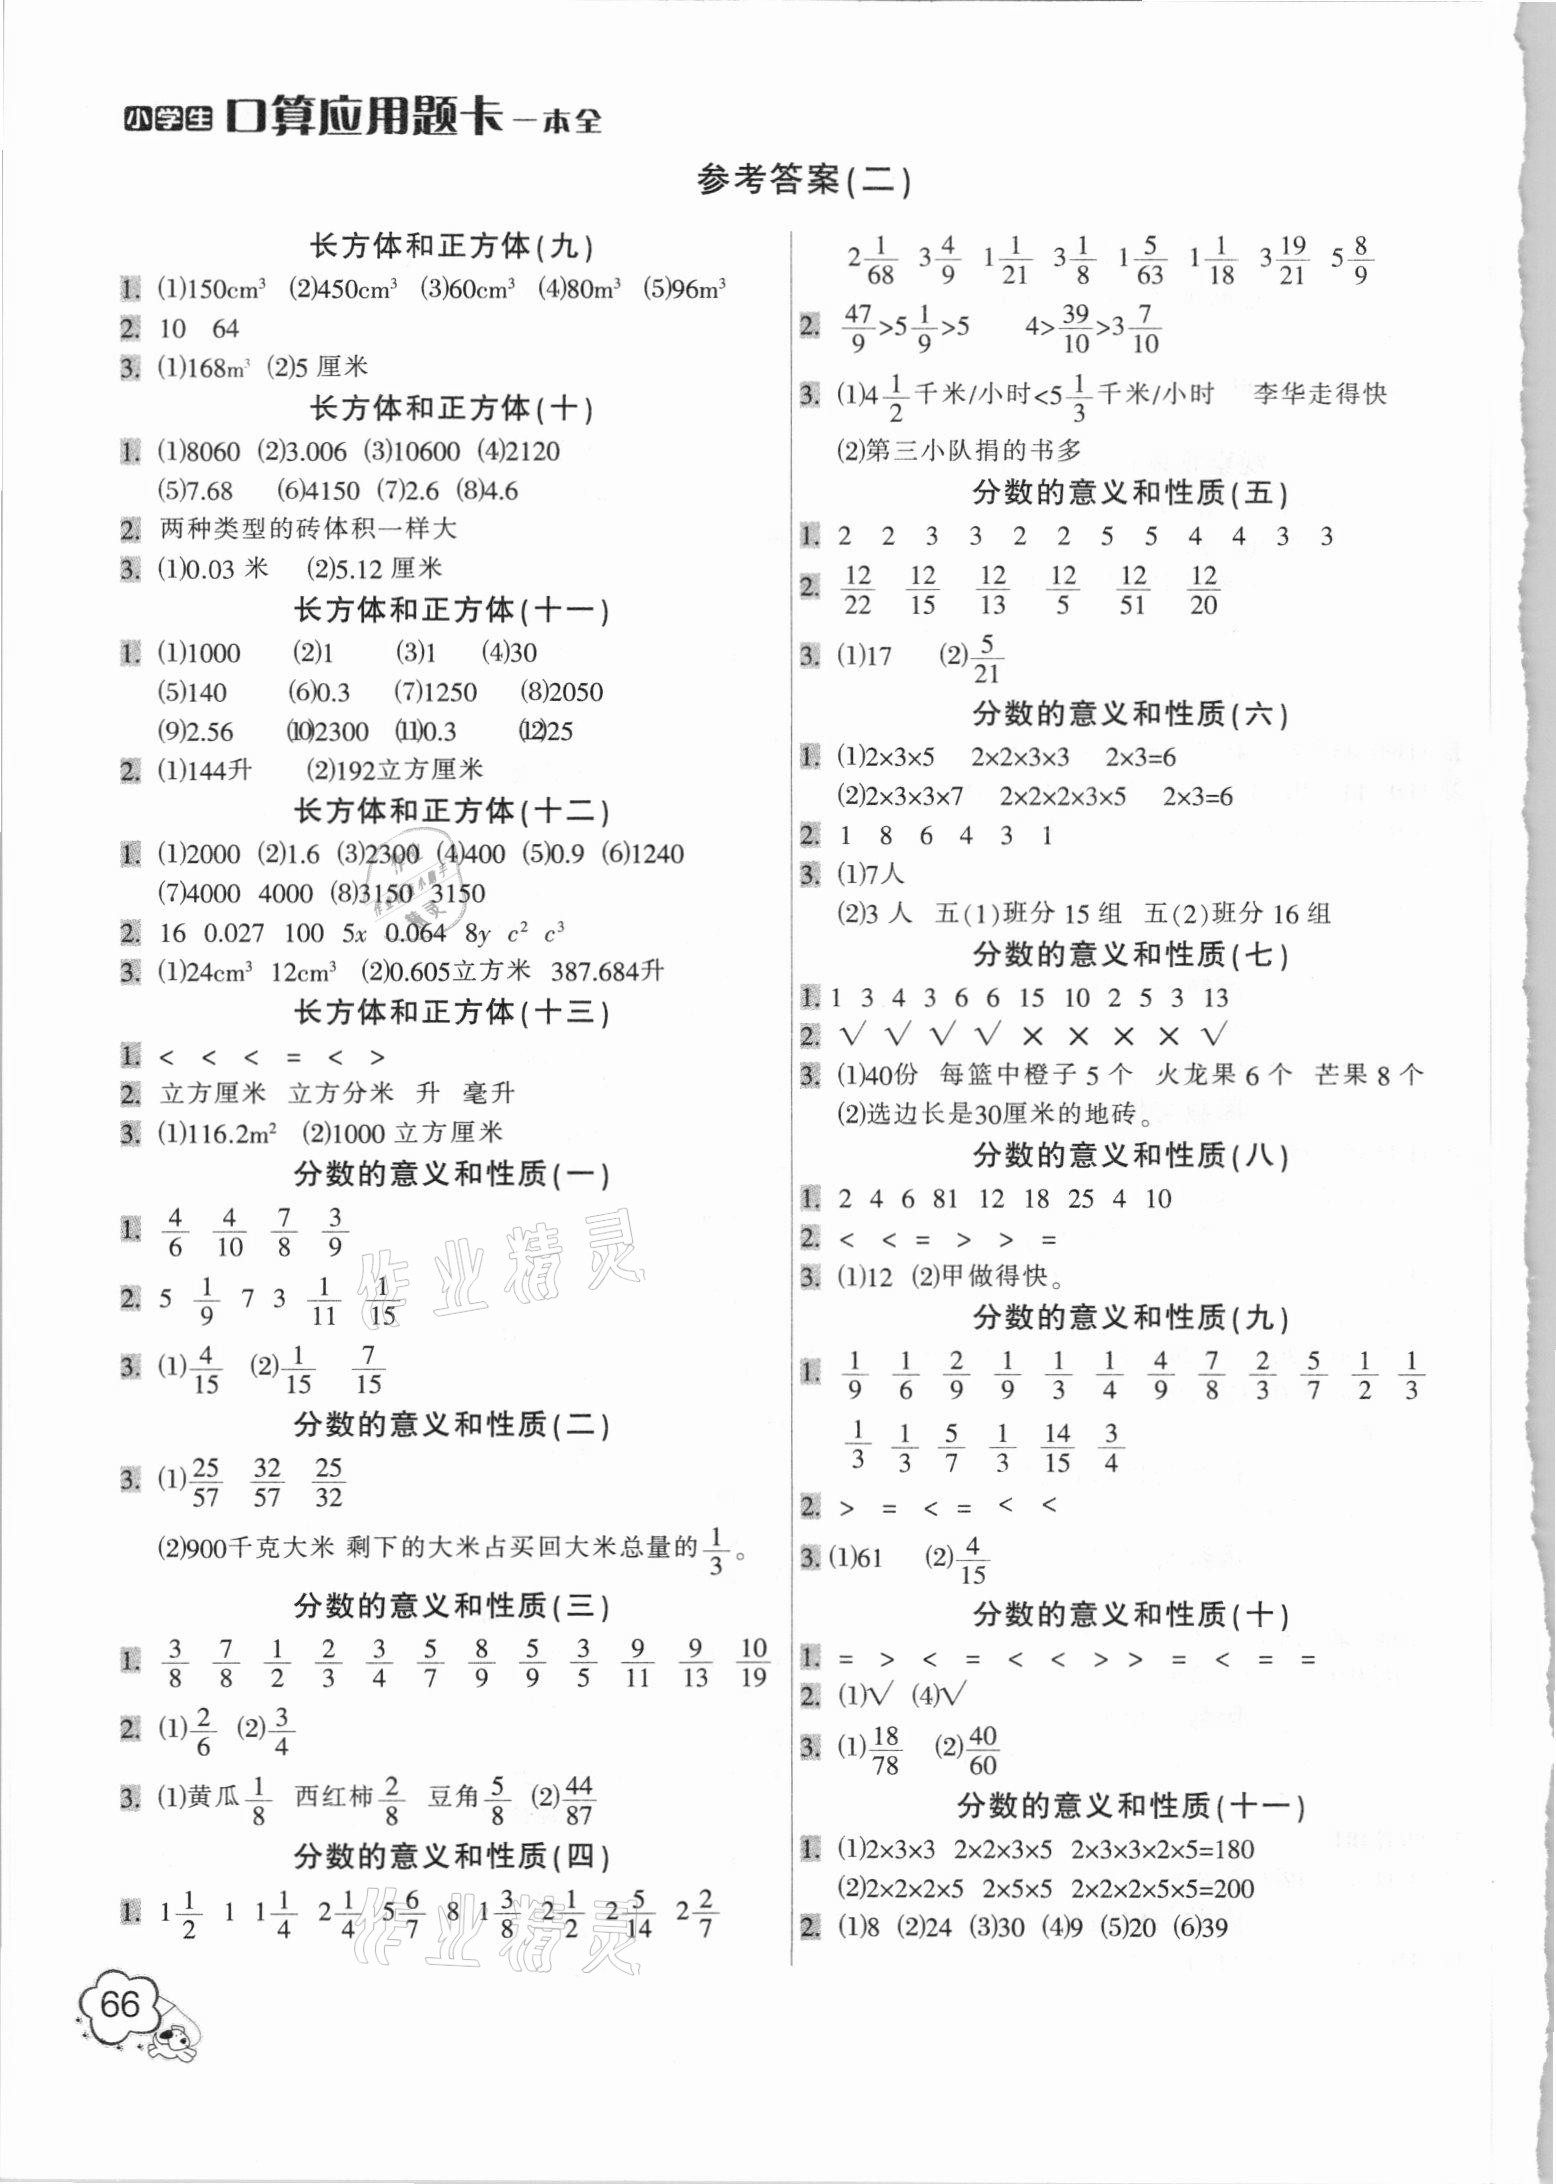 小学生 口算应用题卡 一本全
参考答案(二)
长方体和正方体(九)
1. (1)150cm³ (2)450cm³ (3)60cm³ (4)80m³ (5)96m³
2. 10 64
3. (1)168m³ (2)5 厘米
长方体和正方体(十)
1. (1)8060 (2)3.006 (3)10600 (4)2120
(5)7.68 (6)4150 (7)2.6 (8)4.6
2. 两种类型的砖体积一样大
3. (1)0.03 米 (2)5.12 厘米
长方体和正方体(十一)
1. (1)1000 (2)1 (3)1 (4)30
(5)140 (6)0.3 (7)1250 (8)2050
(9)2.56 (10)2300 (11)0.3 (12)25
2. (1)144升 (2)192立方厘米
长方体和正方体(十二)
1. (1)2000 (2)1.6 (3)2300 (4)400 (5)0.9 (6)1240
(7)4000 4000 (8)3150 3150
2. 16 0.027 100 5x 0.064 8y c² c³
3. (1)24cm³ 12cm³ (2)0.605立方米 387.684升
长方体和正方体(十三)
1. < < < = < >
2. 立方厘米 立方分米 升 毫升
3. (1)116.2m² (2)1000 立方厘米
分数的意义和性质(一)
1. 4/6 4/10 7/8 3/9
2. 5 1/9 7 3 1/11 1/15
3. (1)4/15 (2)1/15 7/15
分数的意义和性质(二)
3. (1)25/57 32/57 25/32
(2)900千克大米 剩下的大米占买回大米总量的1/3。
分数的意义和性质(三)
1. 3/8 7/8 1/2 2/3 3/4 5/7 8/9 5/9 3/5 9/11 9/13 10/19
2. (1)2/6 (2)3/4
3. (1)黄瓜1/8 西红柿2/8 豆角5/8 (2)44/87
分数的意义和性质(四)
1. 1 1/2 1 1 1/4 2 1/4 5 6/7 8 1 3/8 2 1/2 2 5/14 2 2/7
66
2 1/68 3 4/9 1 1/21 3 1/8 1 5/63 1 1/18 3 19/21 5 8/9
2. 47/9>5 1/9>5 4>39/10>3 7/10
3. (1)4 1/2千米/小时<5 1/3千米/小时 李华走得快
(2)第三小队捐的书多
分数的意义和性质(五)
1. 2 2 3 3 2 2 5 5 4 4 3 3
2. 12/22 12/15 12/13 12/5 12/51 12/20
3. (1)17 (2)5/21
分数的意义和性质(六)
1. (1)2×3×5 2×2×3×3 2×3=6
(2)2×3×3×7 2×2×2×3×5 2×3=6
2. 1 8 6 4 3 1
3. (1)7人
(2)3 人 五(1)班分 15 组 五(2)班分 16 组
分数的意义和性质(七)
1. 1 3 4 3 6 6 15 10 2 5 3 13
2. √ √ √ √ × × × × √
3. (1)40份 每篮中橙子 5 个 火龙果 6 个 芒果 8 个
(2)选边长是30厘米的地砖。
分数的意义和性质(八)
1. 2 4 6 81 12 18 25 4 10
2. < < = > > =
3. (1)12 (2)甲做得快。
分数的意义和性质(九)
1. 1/9 1/6 2/9 1/9 1/3 1/4 4/9 7/8 2/3 5/7 1/2 1/3
1/3 1/3 5/7 1/3 14/15 3/4
2. > = < = < <
3. (1)61 (2)4/15
分数的意义和性质(十)
1. = > < = < < > > = < = =
2. (1)√ (4)√
3. (1)18/78 (2)40/60
分数的意义和性质(十一)
1. (1)2×3×3 2×2×3×5 2×3×3×2×5=180
(2)2×2×2×5 2×5×5 2×2×2×5×5=200
2. (1)8 (2)24 (3)30 (4)9 (5)20 (6)39
作业精灵
作业精灵